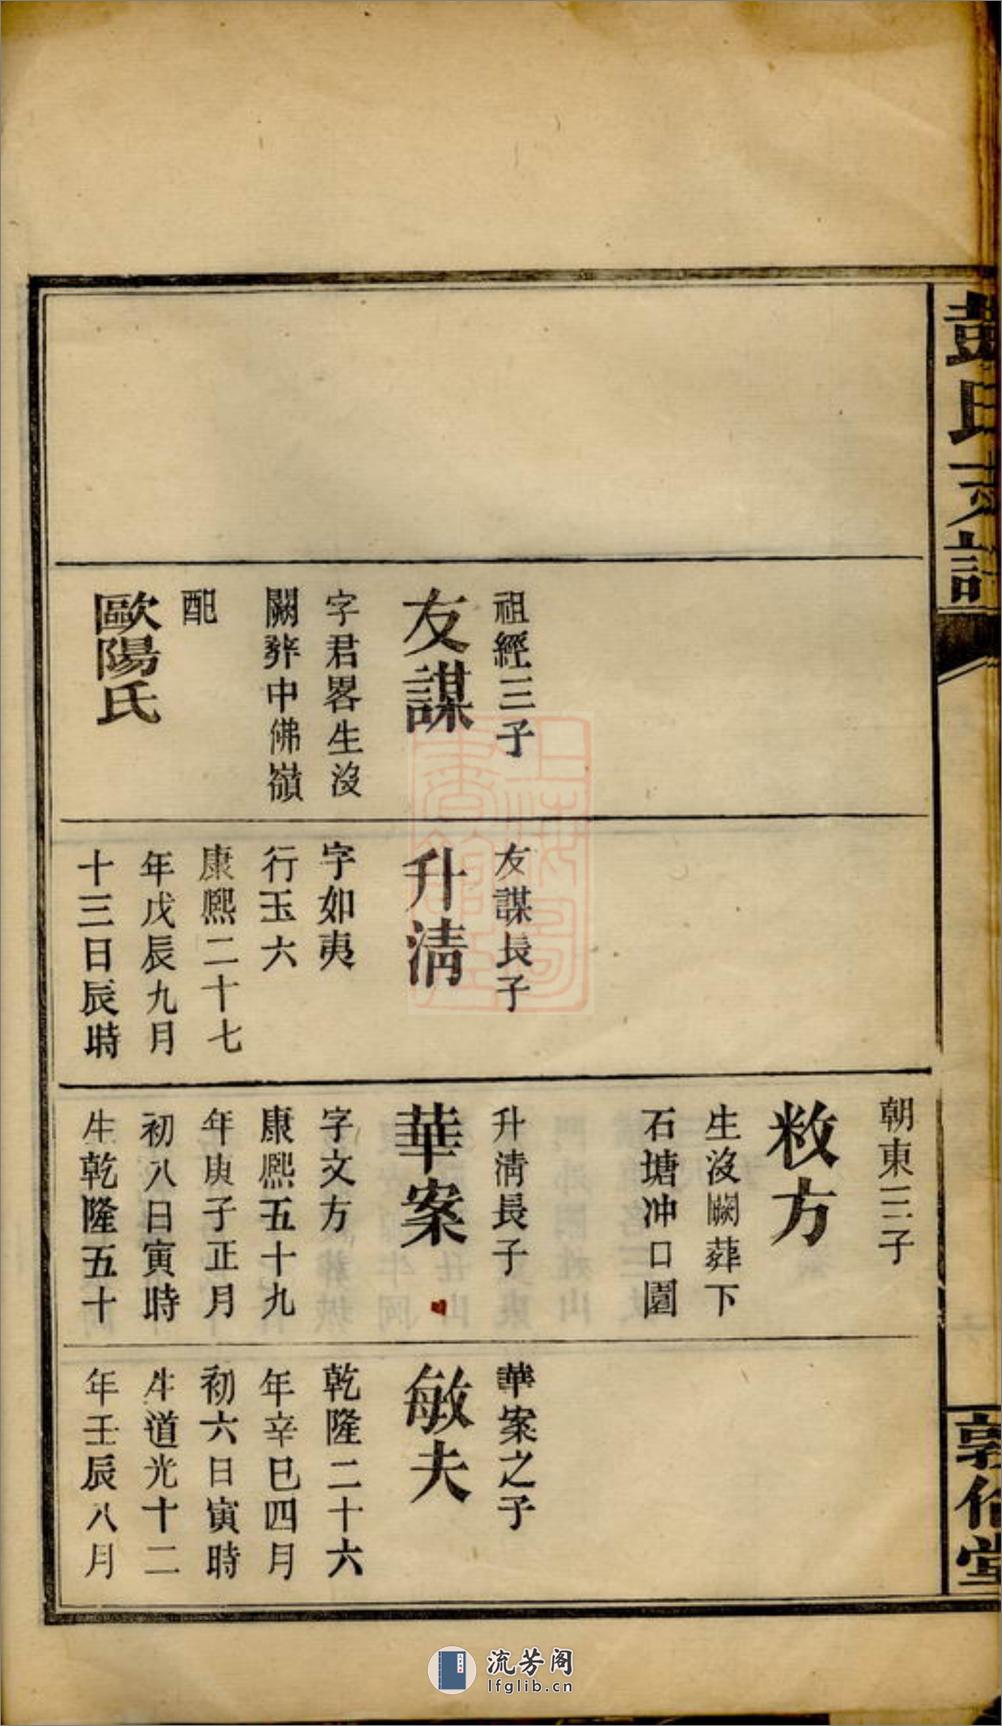 彭氏支譜
祖經三子
友謀
字君畧生沒
闕葬中佛嶺
配
歐陽氏
友謀長子
升淸
字如夷
行玉六
康熙二十七
年戊辰九月
十三日辰時
朝東三子
敉方
生沒闕葬下
石塘冲口園
升淸長子
華案
字文方
康熙五十九
年庚子正月
初八日寅時
生乾隆五十
華案之子
敏夫
乾隆二十六
年辛巳四月
初六日寅時
生道光十二
年壬辰八月
敦倫堂
上海圖書館藏
流芳阁
lfglib.cn